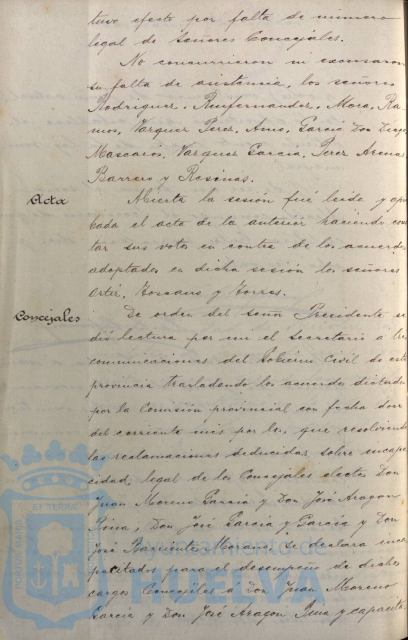 tuvo efecto por falta de número
legal de Señores Concejales.
No concurrieron ni excusaron
su falta de asistencia, los señores
Rodriguez, Mora, Ra
mos, Vazquez Perez, Amo, Garcia Don Diego
Mascarós, Vazquez Garcia, Perez Arenas
Barrero y Rosinas.
Acta
Abierta la sesión fué leida y apro
bada el acta de la anterior haciendo cons
tar sus votos en contra de los acuerdos
adoptados en dicha sesión los señores
Ortiz, Toscano y Torres.
Concejales
De orden del señor Presidente se
dió lectura por mi el Secretario á tres
comunicaciones del Gobierno Civil de esta
provincia trasladando los acuerdos dictados
por la Comisión provincial con fecha doce
del corriente mes por los que resolviendo
las reclamaciones deducidas sobre incapa
cidad legal de los Concejales electos Don
Juan Moreno Garcia y Don José Aragon
Pina, Don José Garcia y Garcia y Don
José Barriento Morano, se declara inca
pacitados para el desempeño de dichos
cargos Concejiles á Don Juan Moreno
Garcia y Don José Aragon Pina y capacita
Ayuntamiento de
HUELVA